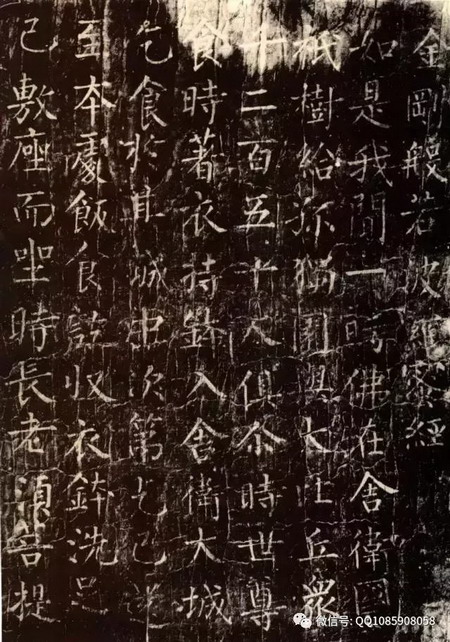 金剛般若波羅蜜經
如是我聞一時佛在舍衛國
祇樹給孤獨園與大比丘衆
千二百五十人俱尒時世尊
食時著衣持鉢入舍衛大城
乞食扵其城中次第乞已還
至本處飯食訖收衣鉢洗足
已敷座而坐時長老須菩提
微信号: QQ1085908058